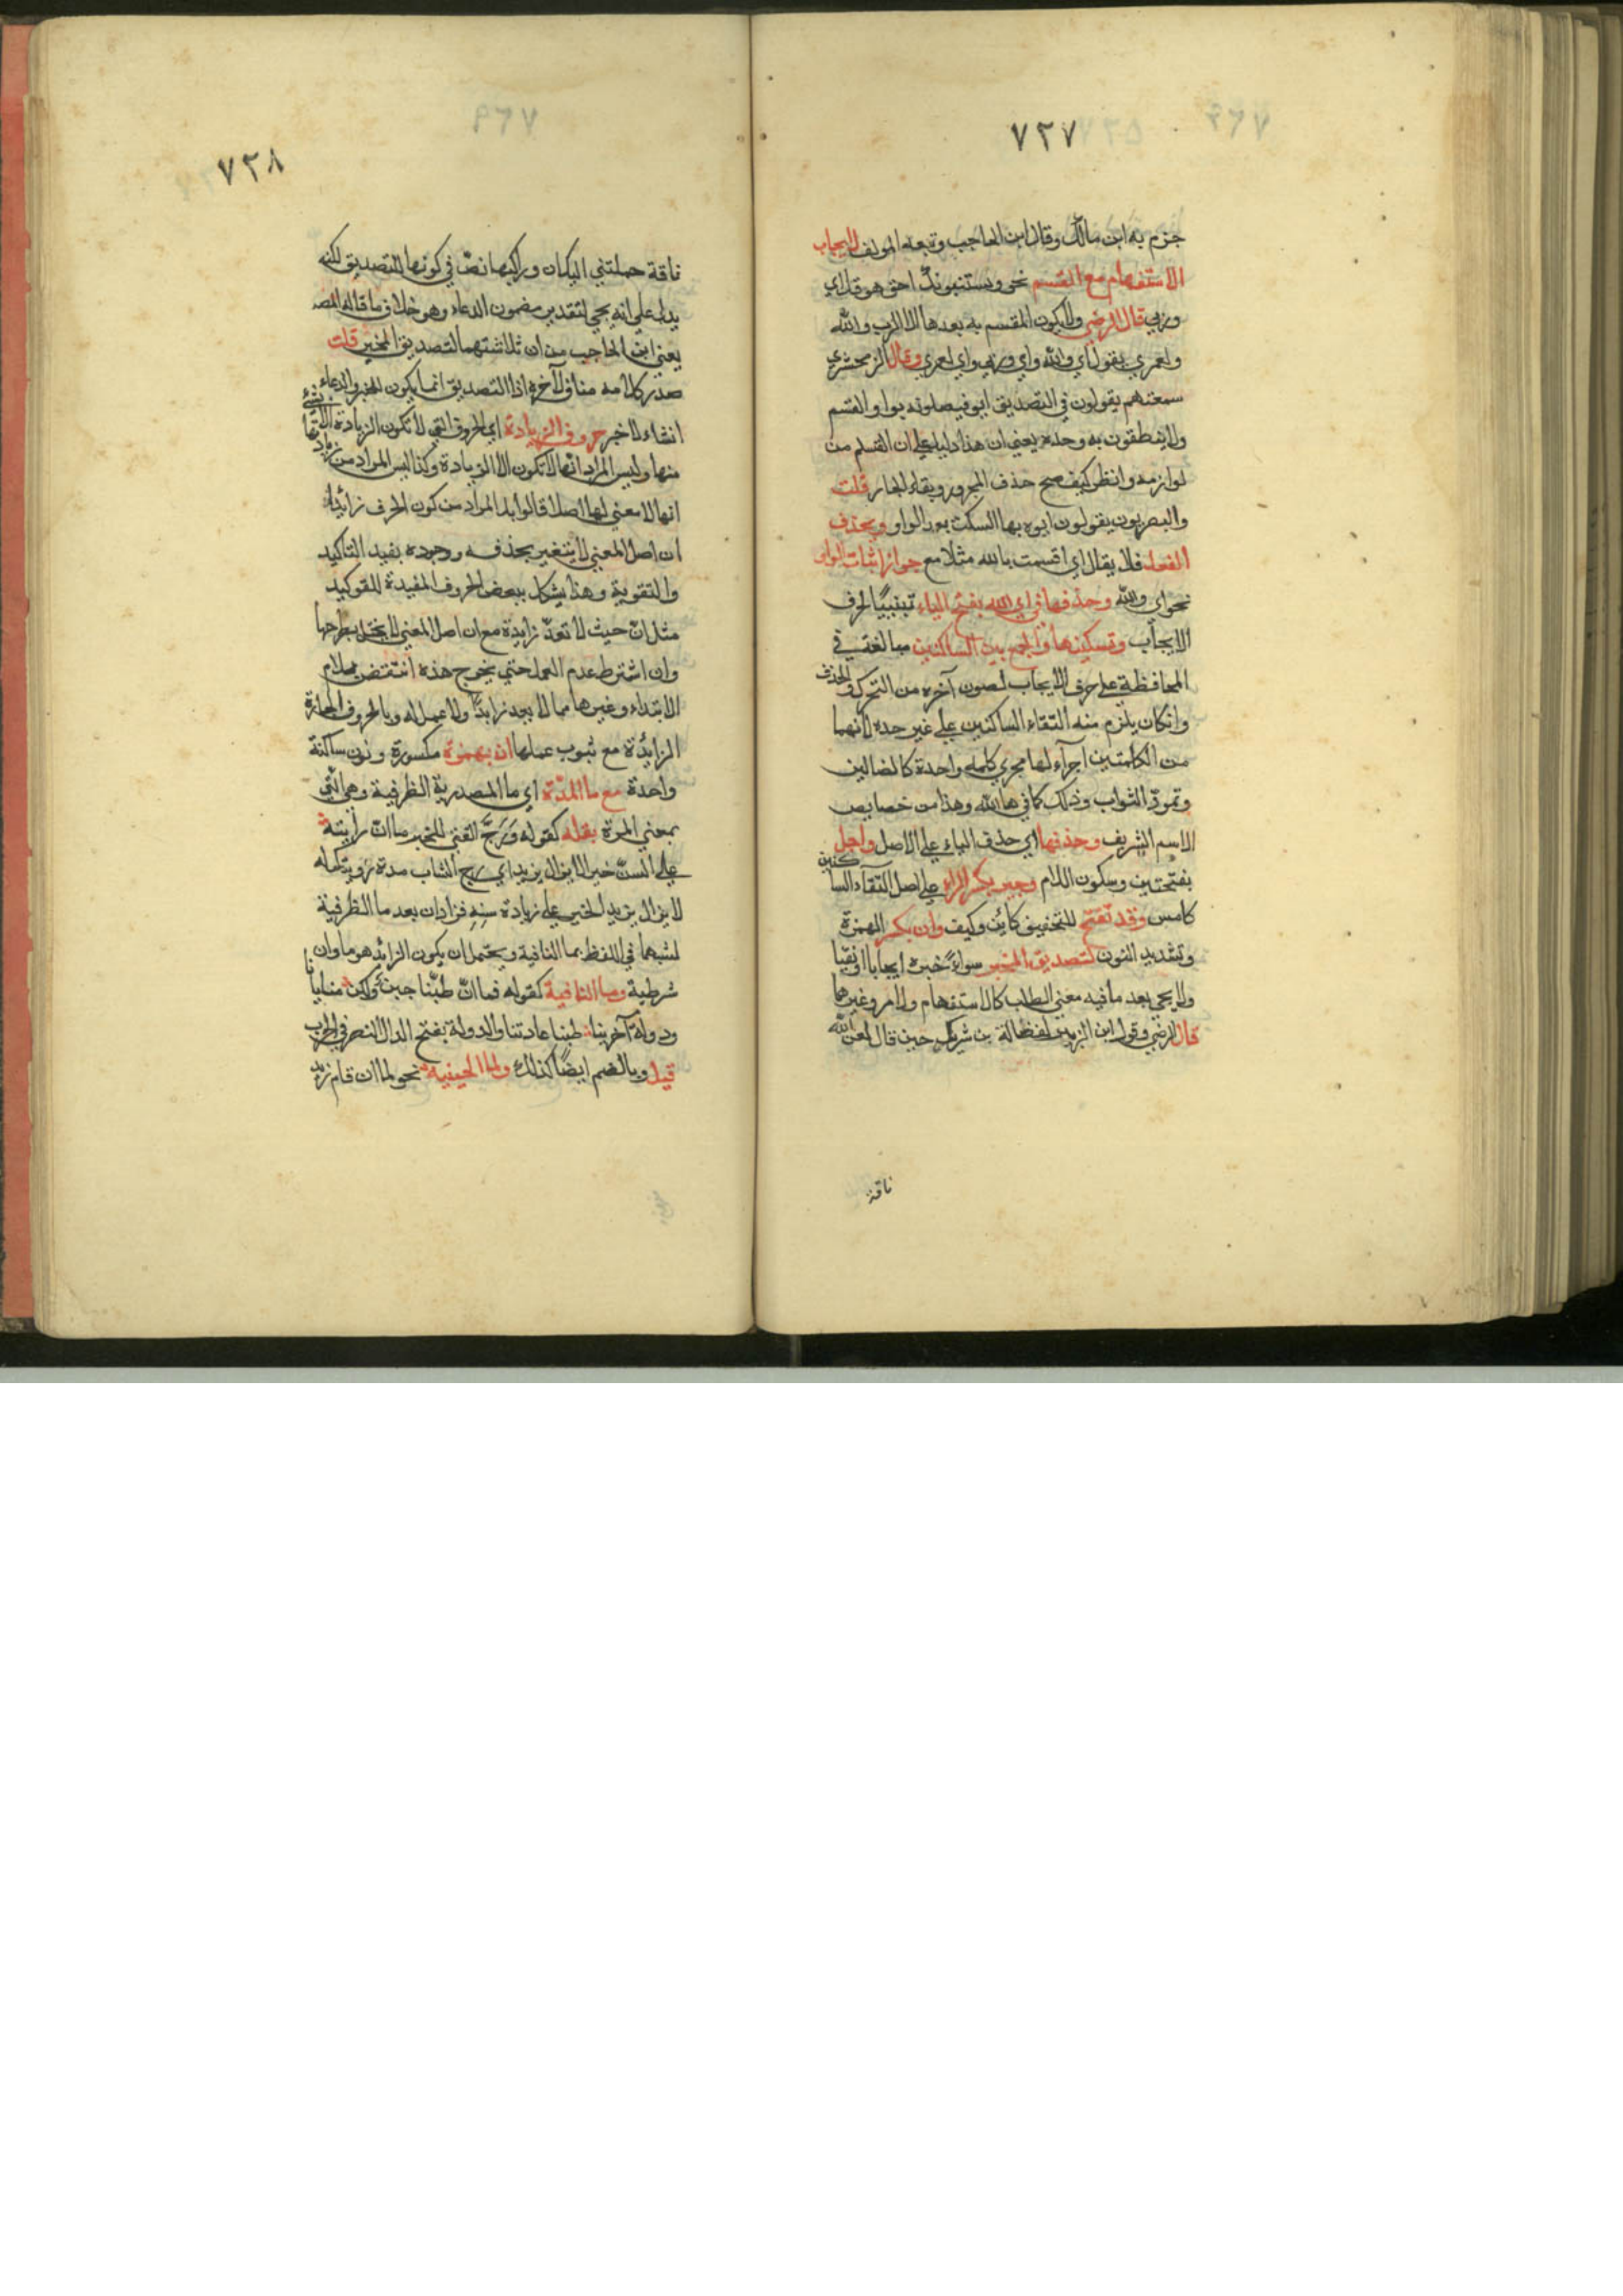 ٧٢٧
جزم به ابن مالك وقال ابن الحاجب وتبعه المولف لايجاب
الاستفهام مع القسم نحو ويستنبؤنك احق هو قل اي
وربي قال الرضي ولا يكون المقسم به بعدها الا الرب والله
ولعمري يقول اي والله واي وربي واي لعمري وقال الزمخشري
سمعتهم يقولون في التصديق ايو فيصلونه بواو القسم
ولا ينطقون به وحده يعني ان هذا دليل علي ان القسم من
لوازمه وانظر كيف صح حذف المجرور وبقاء الجار قلت
والبصريون يقولون ايوه بها السكت بعد الواو ويحذف
الفعل فلا يقال اي اقسمت بالله مثلا مع جواز اثبات الواو
نحو اي والله وحذفها في اي الله بفتح الياء تبيينا لحرف
الايجاب وتسكينها والجمع بين الساكنين مبالغة في
المحافظة علي حرف الايجاب لصون آخره من التحرك والحذف
وانكان يلزم منه التقاء الساكنين علي غير حده لانهما
من الكلمتين اجرآء لها مجري كلمه واحدة كالضالين
وتمودّ الثواب وذلك كما في ها الله وهذا من خصايص
الاسم الشريف وحذفها اي حذف الياء علي الاصل واجل
بفتحتين وسكون اللام وجير بكسر الراء علي اصل التقاء الساكنين
كامس وقد تفتح للتخفيف كاين وكيف وان بكسر الهمزة
وتشديد النون لتصديق المخبر سواء خبره ايجابا او نفيا
ولا يجي بعد ما فيه معني الطلب كالاستفهام والامر وغيرهما
قال الرضي وقول ابن الزبير لفضالة بن شريك حين قال لعن الله
ناقة
٧٢٨
ناقة حملتني اليك ان وراكبها نص في كونها للتصديق لكنه
يدل علي انه يجي لتقدير مضمون الدعاء وهو خلاف ما قاله المصـ
يعني ابن الحاجب من ان ثلاثتها لتصديق المخبر قلت
صدر كلامه مناف لآخره اذا التصديق انما يكون للخبر والدعاء
انشاء لا خبر حروف الزيادة اي الحروف التي لا تكون الزيادة الا
منها وليس المراد انها لا تكون الا الزيادة وكذا ليس المراد من زيادتها
انها لا معني لها اصلا قالوا بل المراد من كون الحرف زائدا
ان اصل المعني لا يتغير بحذفه ووجوده يفيد التاكيد
والتقوية وهذا يشكل ببعض الحروف المفيدة للتوكيد
مثل انّ حيث لا تعدّ زايدة مع ان اصل المعني لا يختل بطرحها
وان اشترط عدم العمل حتي يخرج هذه انتقض بلام
الابتداء وغيرها مما لا يعد زايدا ولا عمل له وبالحروف الجارة
الزايدة مع ثبوت عملها ان بهمزة مكسورة ونون ساكنة
واحدة مع ما المدة اي ما المصدرية الظرفية وهي التي
بمعني المدة بقلة كقوله وَرَجّ الفتي للخير ما ان رايته
علي السن خيرا لا يزال يزيد اي رج الشاب مدة رويتك له
لا يزال يزيد الخير علي زيادة سنه فزاد ان بعد ما الظرفية
لشبهها في اللفظ بما النافية ويحتمل ان يكون الزائد هو ما وان
شرطية وما النافية كقوله فما انّ طبّنا جبن ولكن منايانا
ودولة آخرينا طبنا عادتنا والدولة بفتح الدال النصر في الحرب
قيل وبالضم ايضا كذلك ولما الحينيه نحو لما ان قام زيد